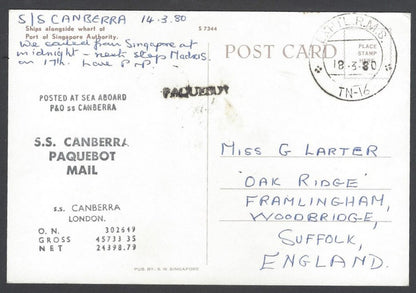 S/S CANBERRA 14.3.80
Ships alongside wharf at
Port of Singapore Authority.
We sailed from Singapore at
midnight - next stop Madras.
on 17th. Love
POSTED AT SEA ABOARD
P&O ss CANBERRA
S.S. CANBERRA
PAQUEBOT
MAIL
S.S. CANBERRA
LONDON.
O. N. 302649
GROSS 45733.35
NET 24398.79
PUB. BY. S. W. SINGAPORE
S 7344
POST CARD
PAQUEBOT
PLACE
STAMP
R.M.S.
18-3-80
TN-16
MISS G LARTER
'OAK RIDGE'
FRAMLINGHAM,
WOODBRIDGE,
SUFFOLK,
ENGLAND.